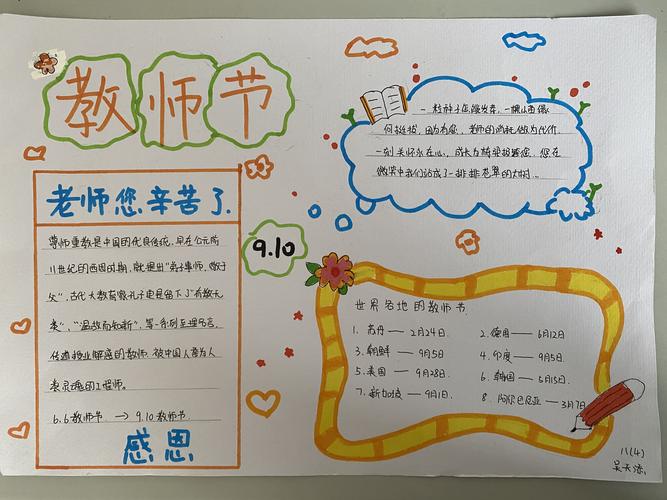 教师节
老师您辛苦了.
尊师重教是中国的优良传统,早在公元前
11世纪的西周时期,就提出"弟子事师,敬于
父",古代大教育家孔子更是留下了"有教无
类","温故而知新",等一系列至理名言.
传道授业解惑的教师,被中国人誉为人
类灵魂的工程师。
6.6教师节 → 9.10教师节
感恩
9.10
何挺拔,因为有您,老师的消耗做为代价,
一刻关怀永在心,成长为栋梁报答您,您在
微笑中我们站成了一排排苍翠的大树...
世界各地的教师节
1. 苏丹——2月24日.
2. 德国——6月12日
3. 朝鲜——9月5日
4. 印度——9月5日.
5. 美国——9月28日.
6. 韩国——5月15日.
7. 新加坡——9月1日.
8. 阿尔巴尼亚——3月7日